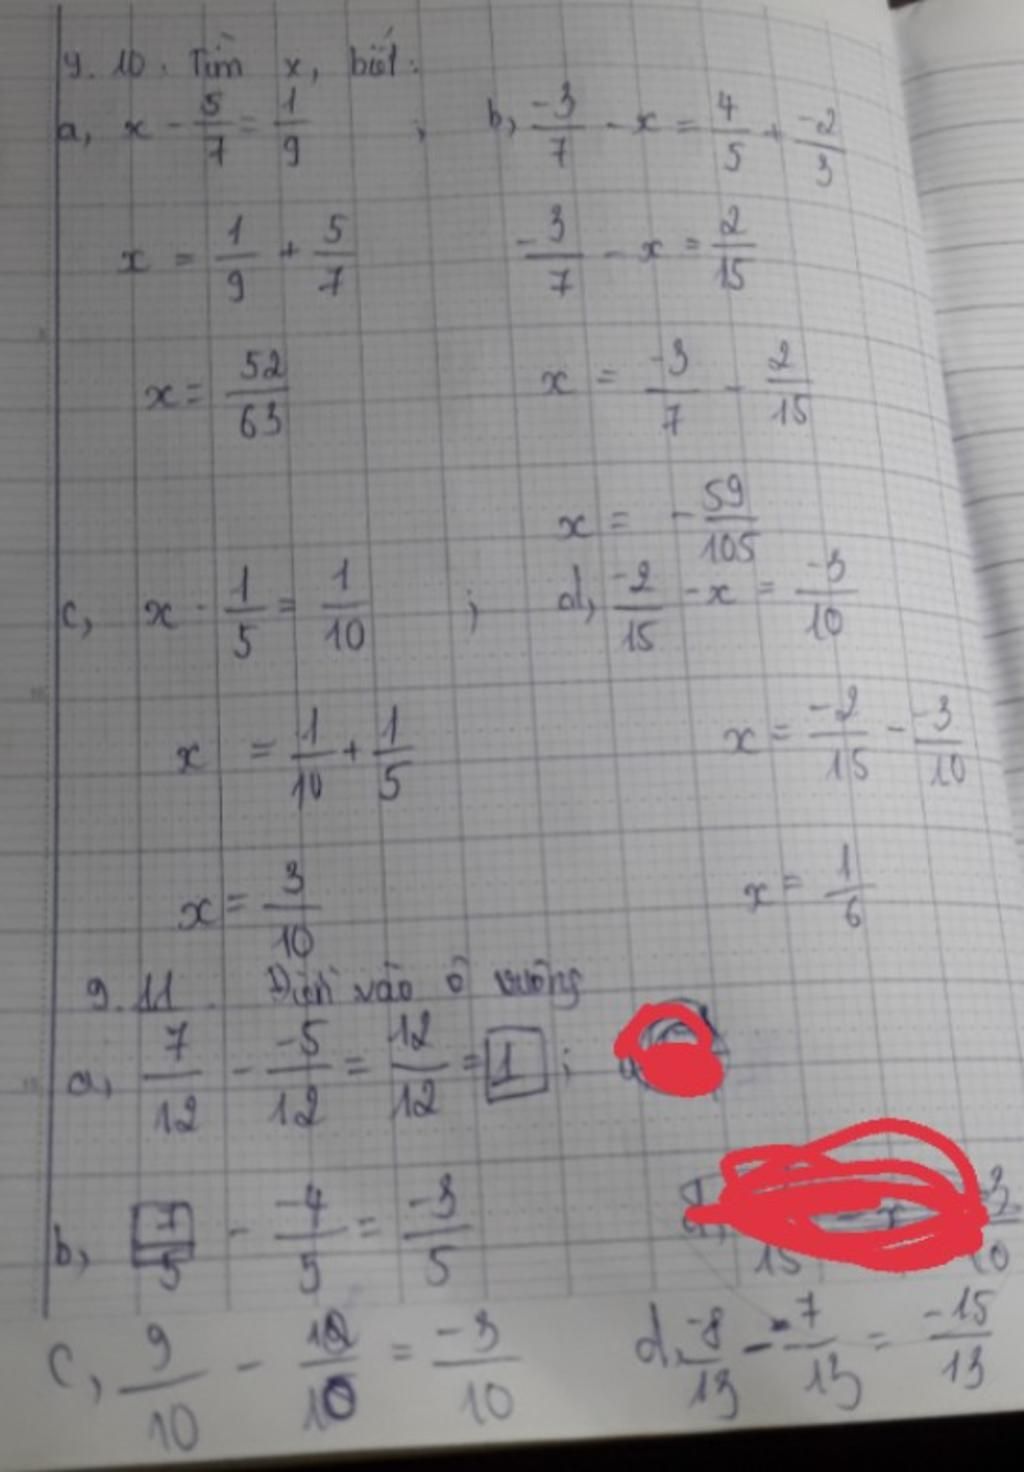 9.10. Tìm x, biết:
a, x - 5/7 = 1/9 ; b, -3/7 - x = 4/5 + -2/3
x = 1/9 + 5/7    -3/7 - x = 2/15
x = 52/63    x = -3/7 - 2/15
x = -59/105
c, x - 1/5 = 1/10 ; d, -2/15 - x = -3/10
x = 1/10 + 1/5    x = -2/15 - -3/10
x = 3/10    x = 1/6
9.11. Điền vào ô vuông
a, 7/12 - -5/12 = 12/12 = 1 ;
b, /5 - -4/5 = -3/5
c, 9/10 - 12/10 = -3/10    d, -8/13 - 7/13 = -15/13